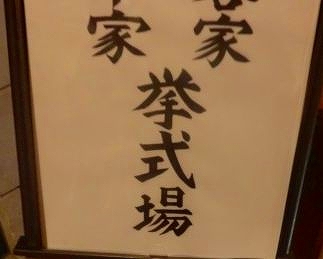 家
家
挙式場